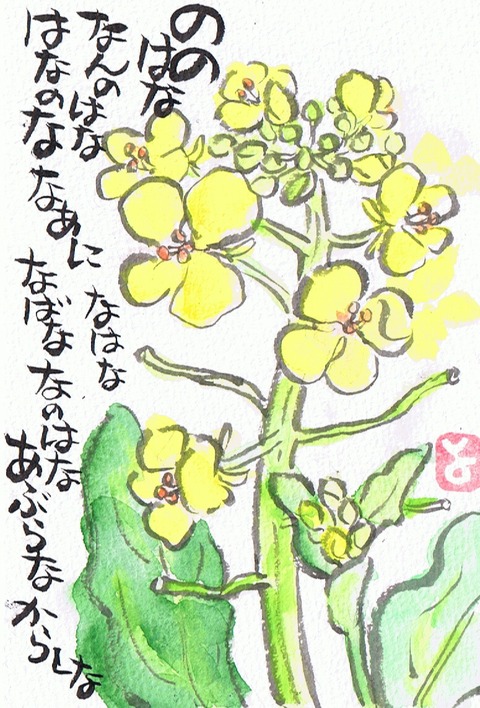 のの
はな
なんのはな
はなのな なあに
なはな
なばな なのはな
あぶらな からしな